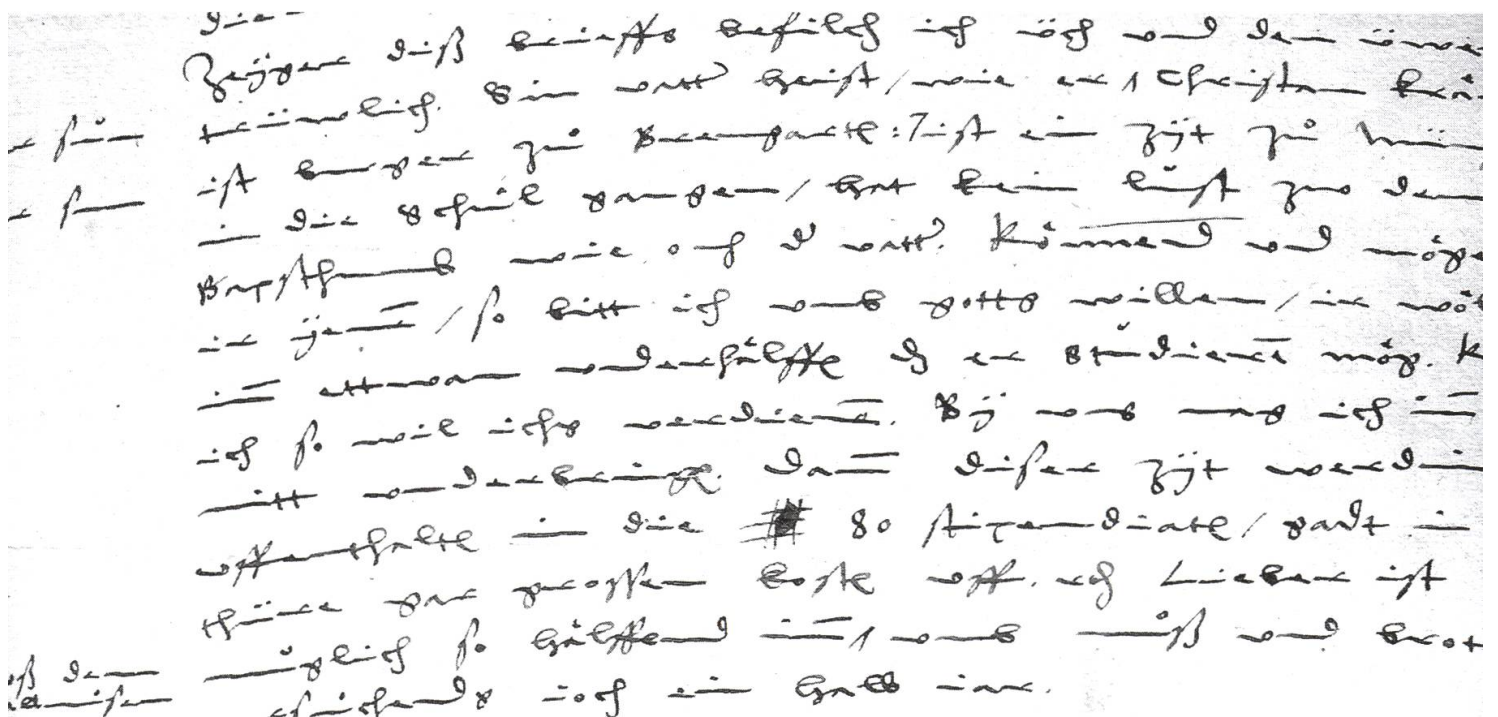 Zeiger diß brieffs befilch ich üch und den üwe
trüwlich. Sin vatt' heist / wie er / Christan krä
ist burger zů Bremgarte: 7 ist ein zyt zů
in die Schůl gangen / hat kein lust zu dem
Bapsthumb wie och d' vatt'. Könnend und möge
ir jenen / so bitt ich umb gotts willen / ir wöl
im ettwan underhälffe dz er studiere mög.
ich so wil ichs verdiene. By uns mag ich im
nitt underbringe. dann diser zyt werdin
uffenthalte in die 80 stipendiate / gadt in
thüre gar grossen koste uff. ach Lieber ist
müglich so hälffend im / umb můß und brot
joch ein halb iar.